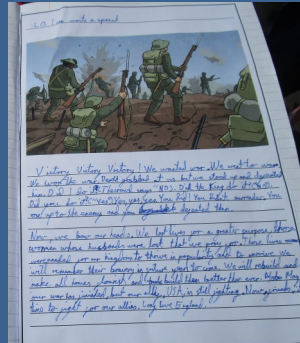 L.O. I can write a speech
Victory Victory Victory! We wanted war. We went to war.
We won the war. Death grabbed at us but we stood up and defeated
him. Did I do it? Churchill says "NO". Did the King do it? No.
Did you do it? "Yes" Yes, yes, yes You Did! You didn't surrender. You
met up to the enemy and you defeated them.
Now, we bow our heads. We lost lives for a greater purpose. Those
women whose husbands were lost that we pray for. Those lives were
needed for our Kingdom to thrive in popularity and to survive. We
will remember their bravery in future years to come. We will rebuild and
make all homes, and build them better than ever.
our war has finished, but our ally, USA, is still fighting. Now,
time to fight for our allies. Long Live England.